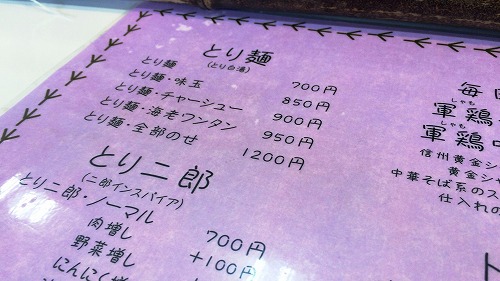 とり麺
(とり白湯)
とり麺 700円
とり麺・味玉 850円
とり麺・チャーシュー 900円
とり麺・海老ワンタン 950円
とり麺・全部のせ 1200円
とり二郎
(二郎インスパイア)
とり二郎・ノーマル 700円
肉増し +100円
野菜増し
にんにく増
毎
しゃも
軍鶏
しゃも
軍鶏
信州黄金シ
黄金シャ
中華そば系のス
仕入れの